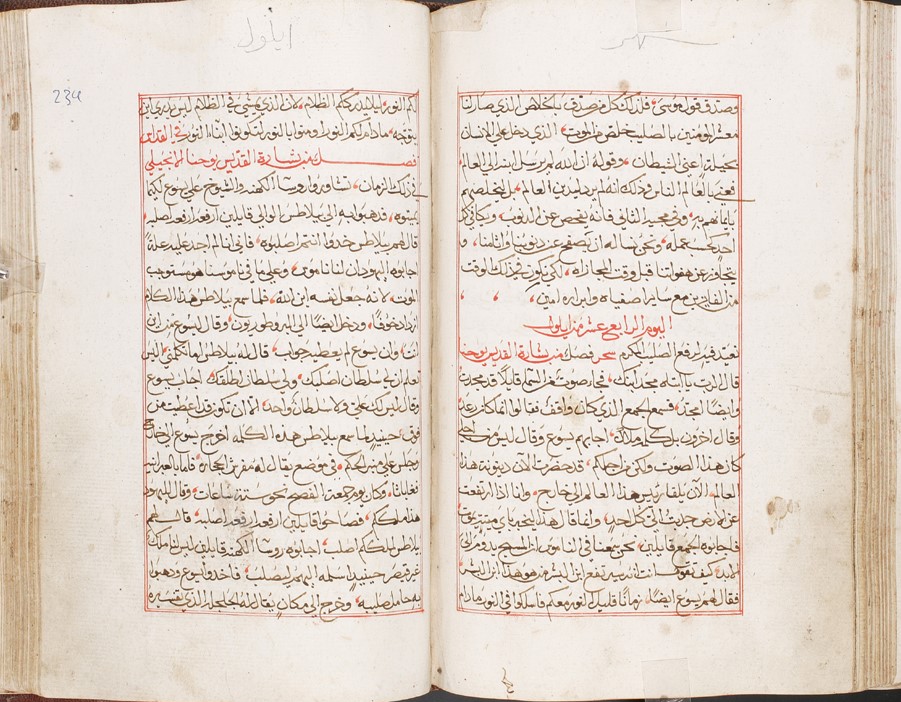 شهر
وصدق قول موسى فلذلك كل من صدق بالخلاص الذي صار لنا
معشر المومنين بالصليب خلص من الموت الذي دخل علي الانسان
بحيلة اعني الشيطان وقوله ان الله لم يرسل ابنه الي العالم
فعني بالعالم الناس وذلك انه لم يرد يدين العالم بل ليخلصهم
بايمانهم به وفي مجيه الثاني فانه يفحص عن الذنوب ويكافي كل
احد كحسب عمله ونحن نساله ان يصفح عن ذنوبنا واثامنا و
يتجاوز عن هفواتنا قبل وقت المجازاه لكي نكون في ذلك الوقت
من الفايزين مع ساير اصفياه وابراره امين
اليوم الرابع عشر من ايلول
نعيد فيه لرفع الصليب المكرم سحر فصل من بشارة القديس يوحنا
قال الرب يا ابتاه مجد ابنك فجا صوت من السما قايلا قد مجدت
وايضا امجد فسمع الجمع الذي كان واقف فقالوا انما كان رعد
وقال اخرون بل كلمه ملاك اجابهم يسوع وقال ليس من اجلي
كان هذا الصوت ولكن من اجلكم قد حضرت الان دينونة هذا
العالم الان يلقا رييس هذا العالم الي خارج وانا اذا ارتفعت
عن الارض جذبت الي كل احد وانما قال هذا ليخبر باي ميتة يموت
فاجابوه الجمع قايلين نحن سمعنا في الناموس ان المسيح يدوم الي
الابد كيف تقول انت انه يرتفع ابن البشر من هو هذا ابن البشر
فقال لهم يسوع ايضا زمانا قليل النور معكم فاسلكوا في النور ما دام
ايلول
234
لكم النور ليلا يدرككم الظلام لان الذي يمشي في الظلام ليس يدري اين
يتوجه ما دام لكم النور امنوا بالنور لتكونوا ابناء النور في القداس
فصل من بشارة القديس يوحنا الانجيلي
في ذلك الزمان تشاوروا روسا الكهنه والشيوخ علي يسوع لكيما
يميتوه فذهبوا به الي بيلاطس الوالي قايلين ارفعه ارفعه اصلبه
قال لهم بيلاطس خذوا انتم اصلبوه فاني لم اجد عليه علة
اجابوه اليهود ان لنا ناموس وعلي ما في ناموسنا هو مستوجب
الموت لانه جعل نفسه ابن الله فلما سمع بيلاطس هذا الكلام
ازداد خوفا ودخل ايضا الي البروطوريون وقال ليسوع من اين
انت وان يسوع لم يعطيه جواب قال له بيلاطس اما تكلمني اليس
تعلم ان لي سلطان اصلبك ولي سلطان اطلقك اجاب يسوع
وقال ليس لك علي ولا سلطان واحد الا ان تكون قد اعطيت من
فوق حينيذ لما سمع بيلاطس هذه الكلمه اخرج يسوع الي خارج
وجلس علي منبر الحكم في موضع يقال له مفرش الحجاره فاما بالعبرانيه
فغاباثا وكان يوم جمعة الفصح نحو ستة ساعات وقال لليهود
هذا ملككم فصاحوا قايلين ارفعه ارفعه اصلبه قال لهم
بيلاطس ملككم اصلب اجابوه روسا الكهنه قايلين ليس لنا ملك
غير قيصر حينيذ اسلمه اليهم ليصلب فاخذوا يسوع وذهبوا
به حامل صليبه وخرج الي مكان يقال له الجلجلة الذي تفسيره